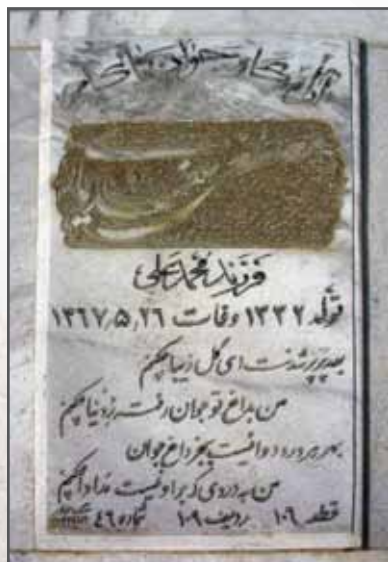 آرامگاه جوان ناکام
فرزند محمدعلی
تولد ۱۳۳۲ وفات ۱۳۶۷٫۵٫۲۶
بعد پرپر شدنت ای گل زیبا چکنم
من بداغ تو جوان رفته ز دنیا چکنم
بهر هر درد دوائیست بجز داغ جوان
من به دردی که بر او نیست مداوا چکنم
قطعه ۱۰۶ ردیف ۱۰۹ شماره ۴۶